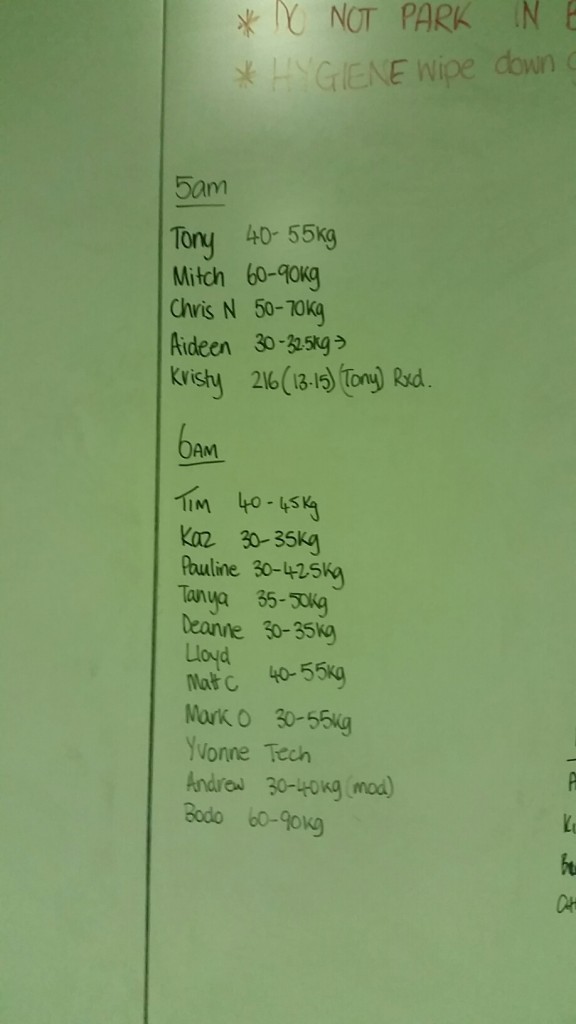 * DO NOT PARK IN
* HYGIENE wipe down
5am
Tony 40-55kg
Mitch 60-90kg
Chris N 50-70kg
Aideen 30-32.5kg→
Kristy 216 (13.15) (Tony) Rxd.
6AM
Tim 40-45kg
Kaz 30-35kg
Pauline 30-42.5kg
Tanya 35-50kg
Deanne 30-35kg
Lloyd
Matt C 40-55kg
Mark O 30-55kg
Yvonne Tech
Andrew 30-40kg (mod)
Bodo 60-90kg